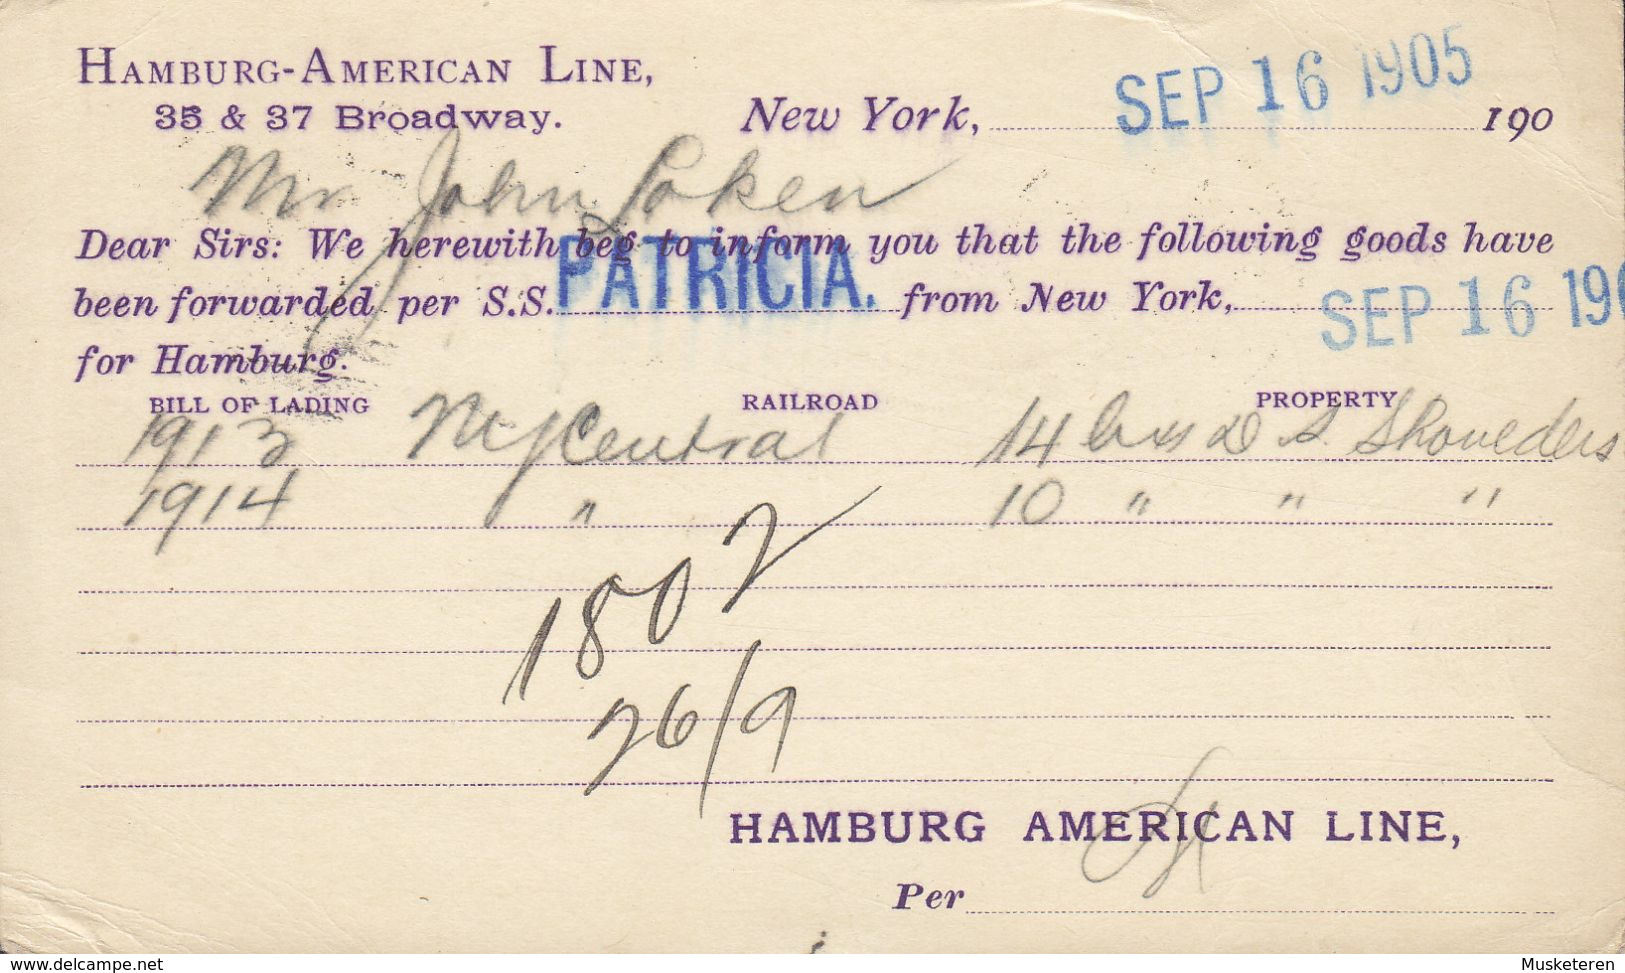 HAMBURG-AMERICAN LINE,
35 & 37 Broadway.
New York, SEP 16 1905 190
Mr John Loken
Dear Sirs: We herewith beg to inform you that the following goods have
been forwarded per S.S. PATRICIA. from New York, SEP 16 190
for Hamburg.
BILL OF LADING RAILROAD PROPERTY
1913 NY Central 14 bxs D S Shoulders
1914 " 10 " " "
1802
26/9
HAMBURG AMERICAN LINE,
Per
www.delcampe.net Musketeren